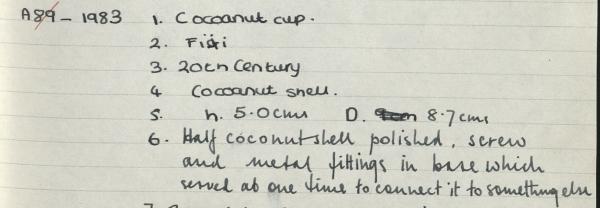 A89 - 1983 1. Cocoanut cup.
2. Fiji
3. 20th Century
4 Cocoanut shell.
5. h. 5.0cms D. 8.7cms
6. Half coconutshell polished, screw
and metal fittings in base which
served at one time to connect it to something else